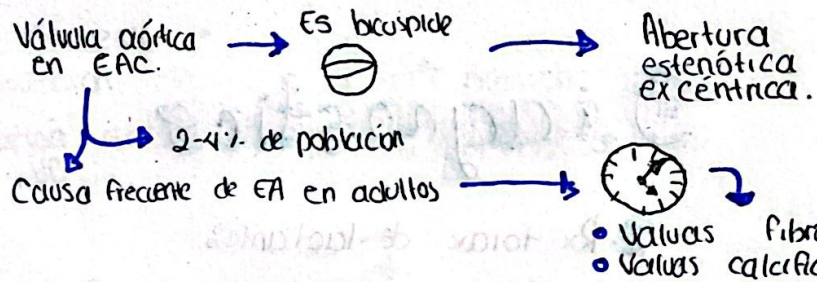 Válvula aórtica en EAC.
Es bicúspide
Abertura estenótica excéntrica.
2-4% de población
Causa frecuente de EA en adultos
• Valvas fibro
• Valvas calcific